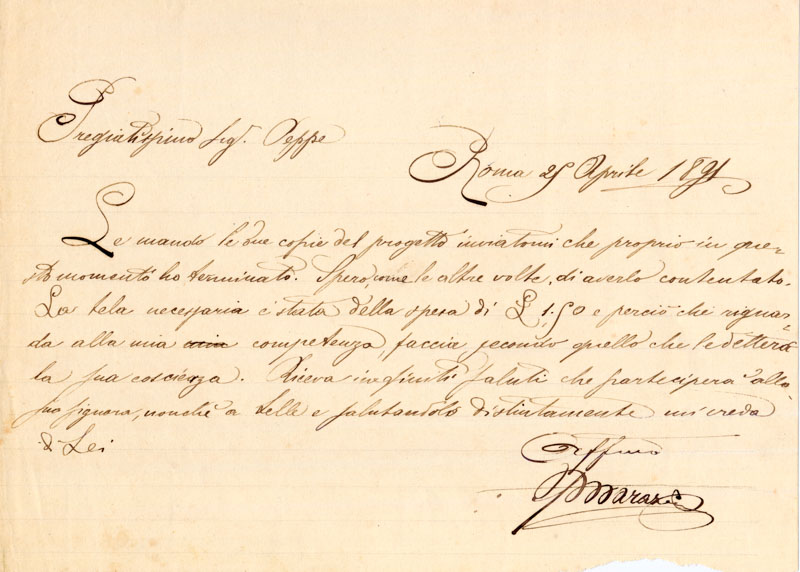 Pregiatissimo Sig.r Peppe
Roma 25 Aprile 1891
Le mando le due copie del progetto inviatomi che proprio in que-
sto momento ho terminato. Spero, come le altre volte, di averlo contentato.
La tela necessaria è stata della spesa di £ 1,50 e perciò che riguar-
da alla mia competenza, faccia secondo quello che le detterà
la sua coscienza. Riceva i saluti che parteciperà alla
sua signora, nonchè a Lelle e salutandolo distintamente mi creda
di Lei
Affmo